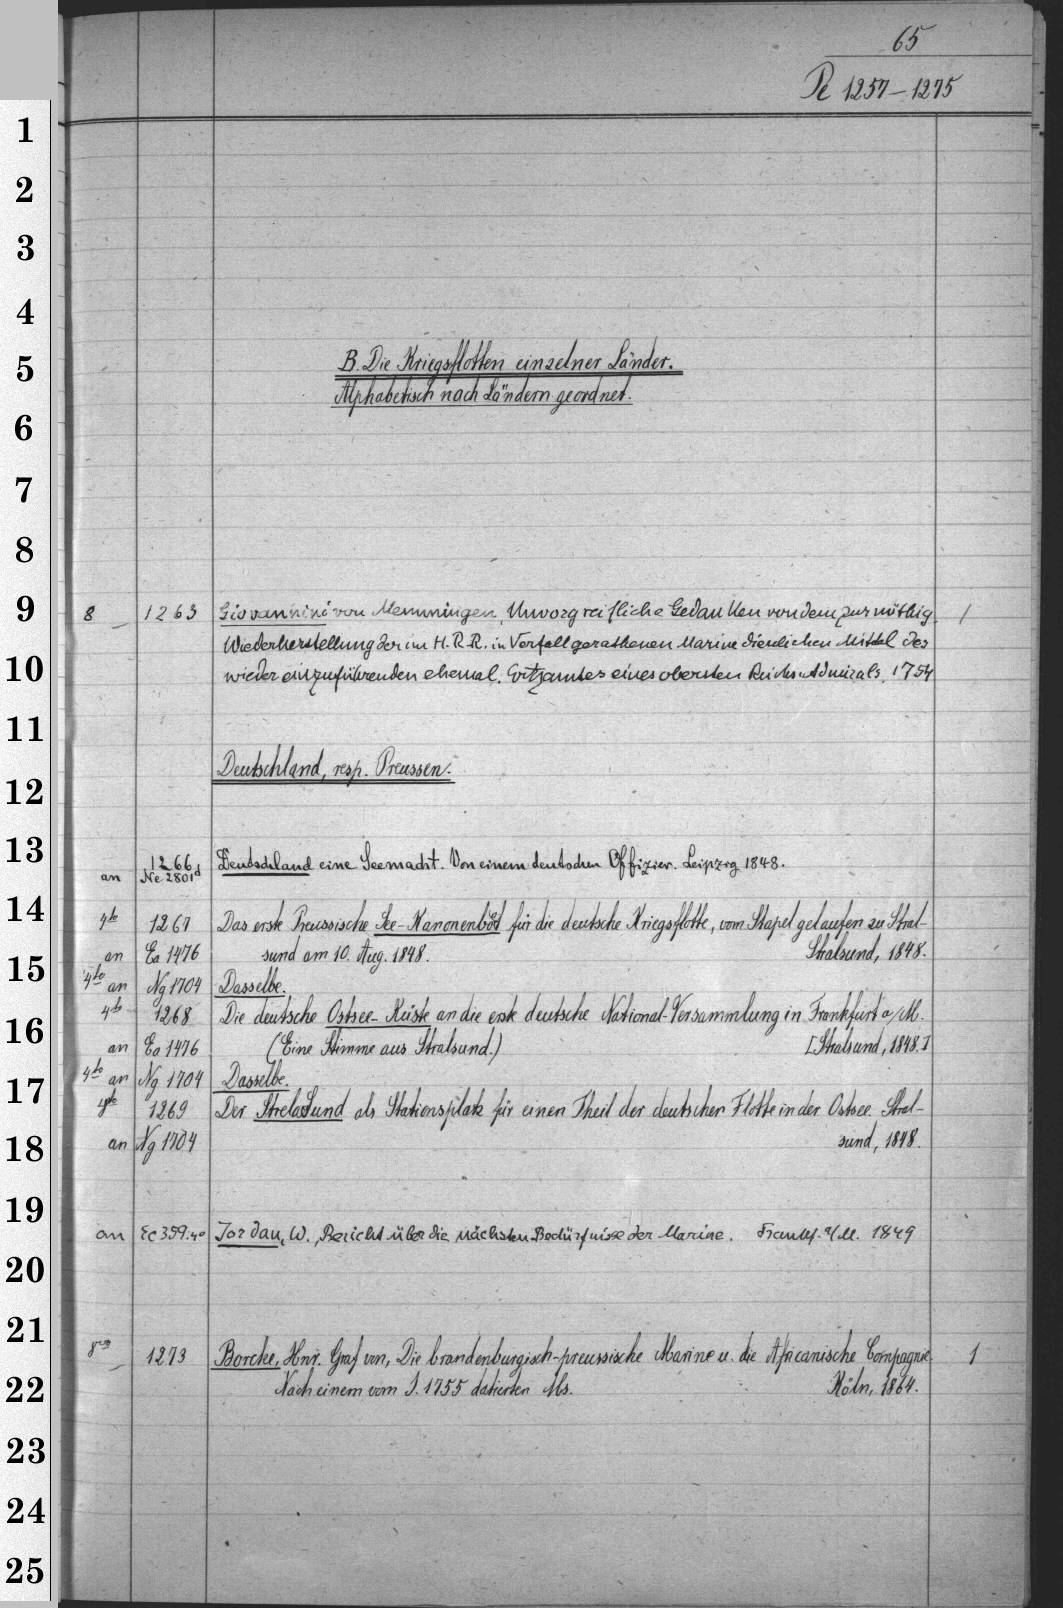 65
Pe 1257-1275
1
2
3
4
B. Die Kriegsflotten einzelner Länder.
5
Alphabetisch nach Ländern geordnet.
6
7
8
9
8 1263 Giovannini von Memmingen, Unvorgreifliche Gedanken von dem zur nöthig. 1
Wiederherstellung der im H. R. R. in Verfall gerathenen Marine dienlichen Mittel des
10
wieder einzuführenden ehemal. Erzamtes eines obersten Reichs-Admirals. 1754
11
Deutschland, resp. Preussen.
12
13
1266 Deutschland eine Seemacht. Von einem deutschen Offizier. Leipzig 1848.
an Ne 2801d
14
4to 1267 Das erste Preussische See-Kanonenboot für die deutsche Kriegsflotte, vom Stapel gelaufen zu Stral-
an Ea 1476 sund am 10. Aug. 1848. Stralsund, 1848.
15
4to an Ng 1704 Dasselbe.
4to 1268 Die deutsche Ostsee-Küste an die erste deutsche National-Versammlung in Frankfurt a/M.
16
an Ea 1476 (Eine Stimme aus Stralsund.) [Stralsund, 1848.]
4to an Ng 1704 Dasselbe.
17
4to 1269 Der StrelaSund als Stationsplatz für einen Theil der deutschen Flotte in der Ostsee. Stral-
18
an Ng 1704 sund, 1848.
19
an Ec 359.40 Jordan, W., Bericht über die nächsten Bedürfnisse der Marine. Frankf. a/M. 1849
20
21
8vo 1273 Borcke, Hnr. Graf von, Die brandenburgisch-preussische Marine u. die Africanische Compagnie. 1
22
Nach einem vom J. 1755 datierten Ms. Köln, 1864.
23
24
25